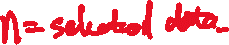 n = selected data